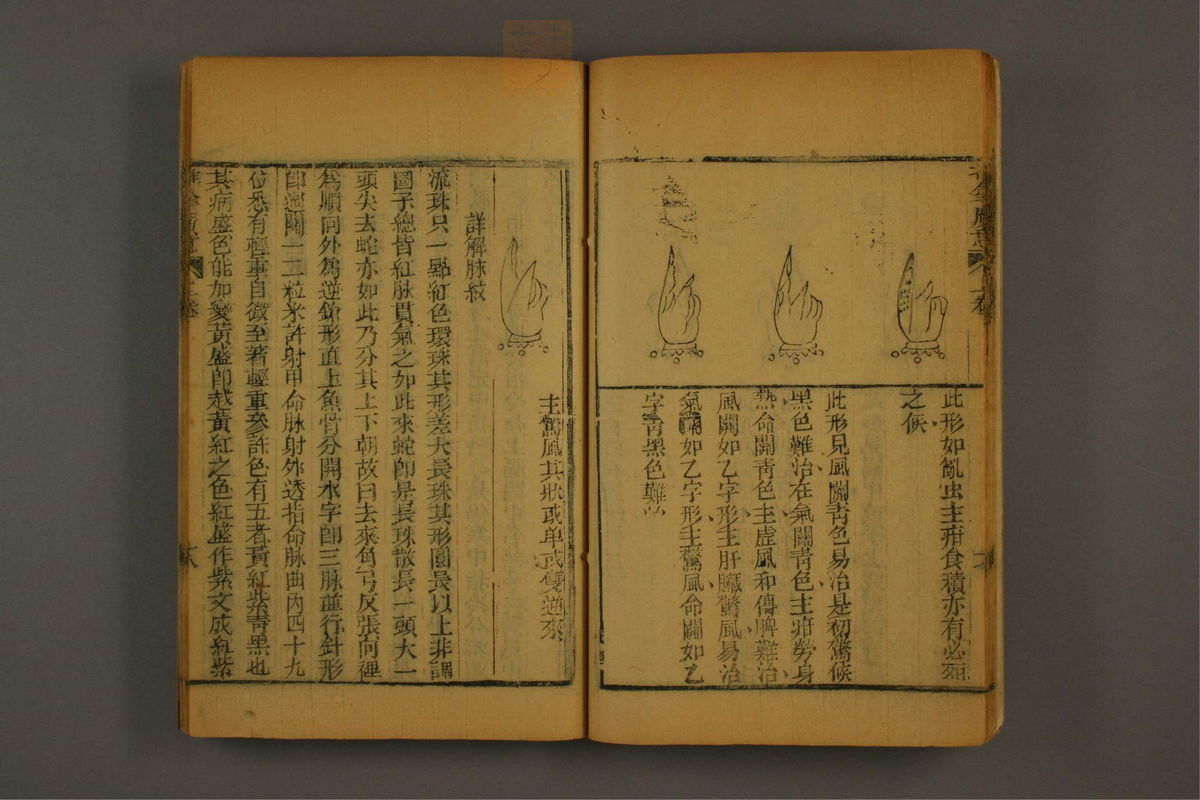 此形如亂虫主疳食積亦有必死
之候
此形見風關青色易治是初驚候
黑色難治在氣關青色主疳勞身
熱命關青色主虛風和傳脾難治
風關如乙字形主肝臟驚風易治
氣關如乙字形主驚風命關如乙
字青黑色難
主驚風其狀或单或雙逆來
詳解脉紋
流珠只一點紅色環珠其形差大長珠其形圓長以上非謂
圖子總皆紅脉貫氣之如此來蛇即是長珠散長一頭大一
頭尖去蛇亦如此乃分其上下朝故曰去來角弓反張向裡
為順向外為逆鎗形直上魚骨分開水字即三脉並行針形
即過關一二粒米許射甲命脉射外透指命脉曲內四十九
位悉有輕重自微至著輕重參許色有五者黃紅紫靑黑也
其病盛色能加變黃盛即越黃紅之色紅盛作紫文成紅紫